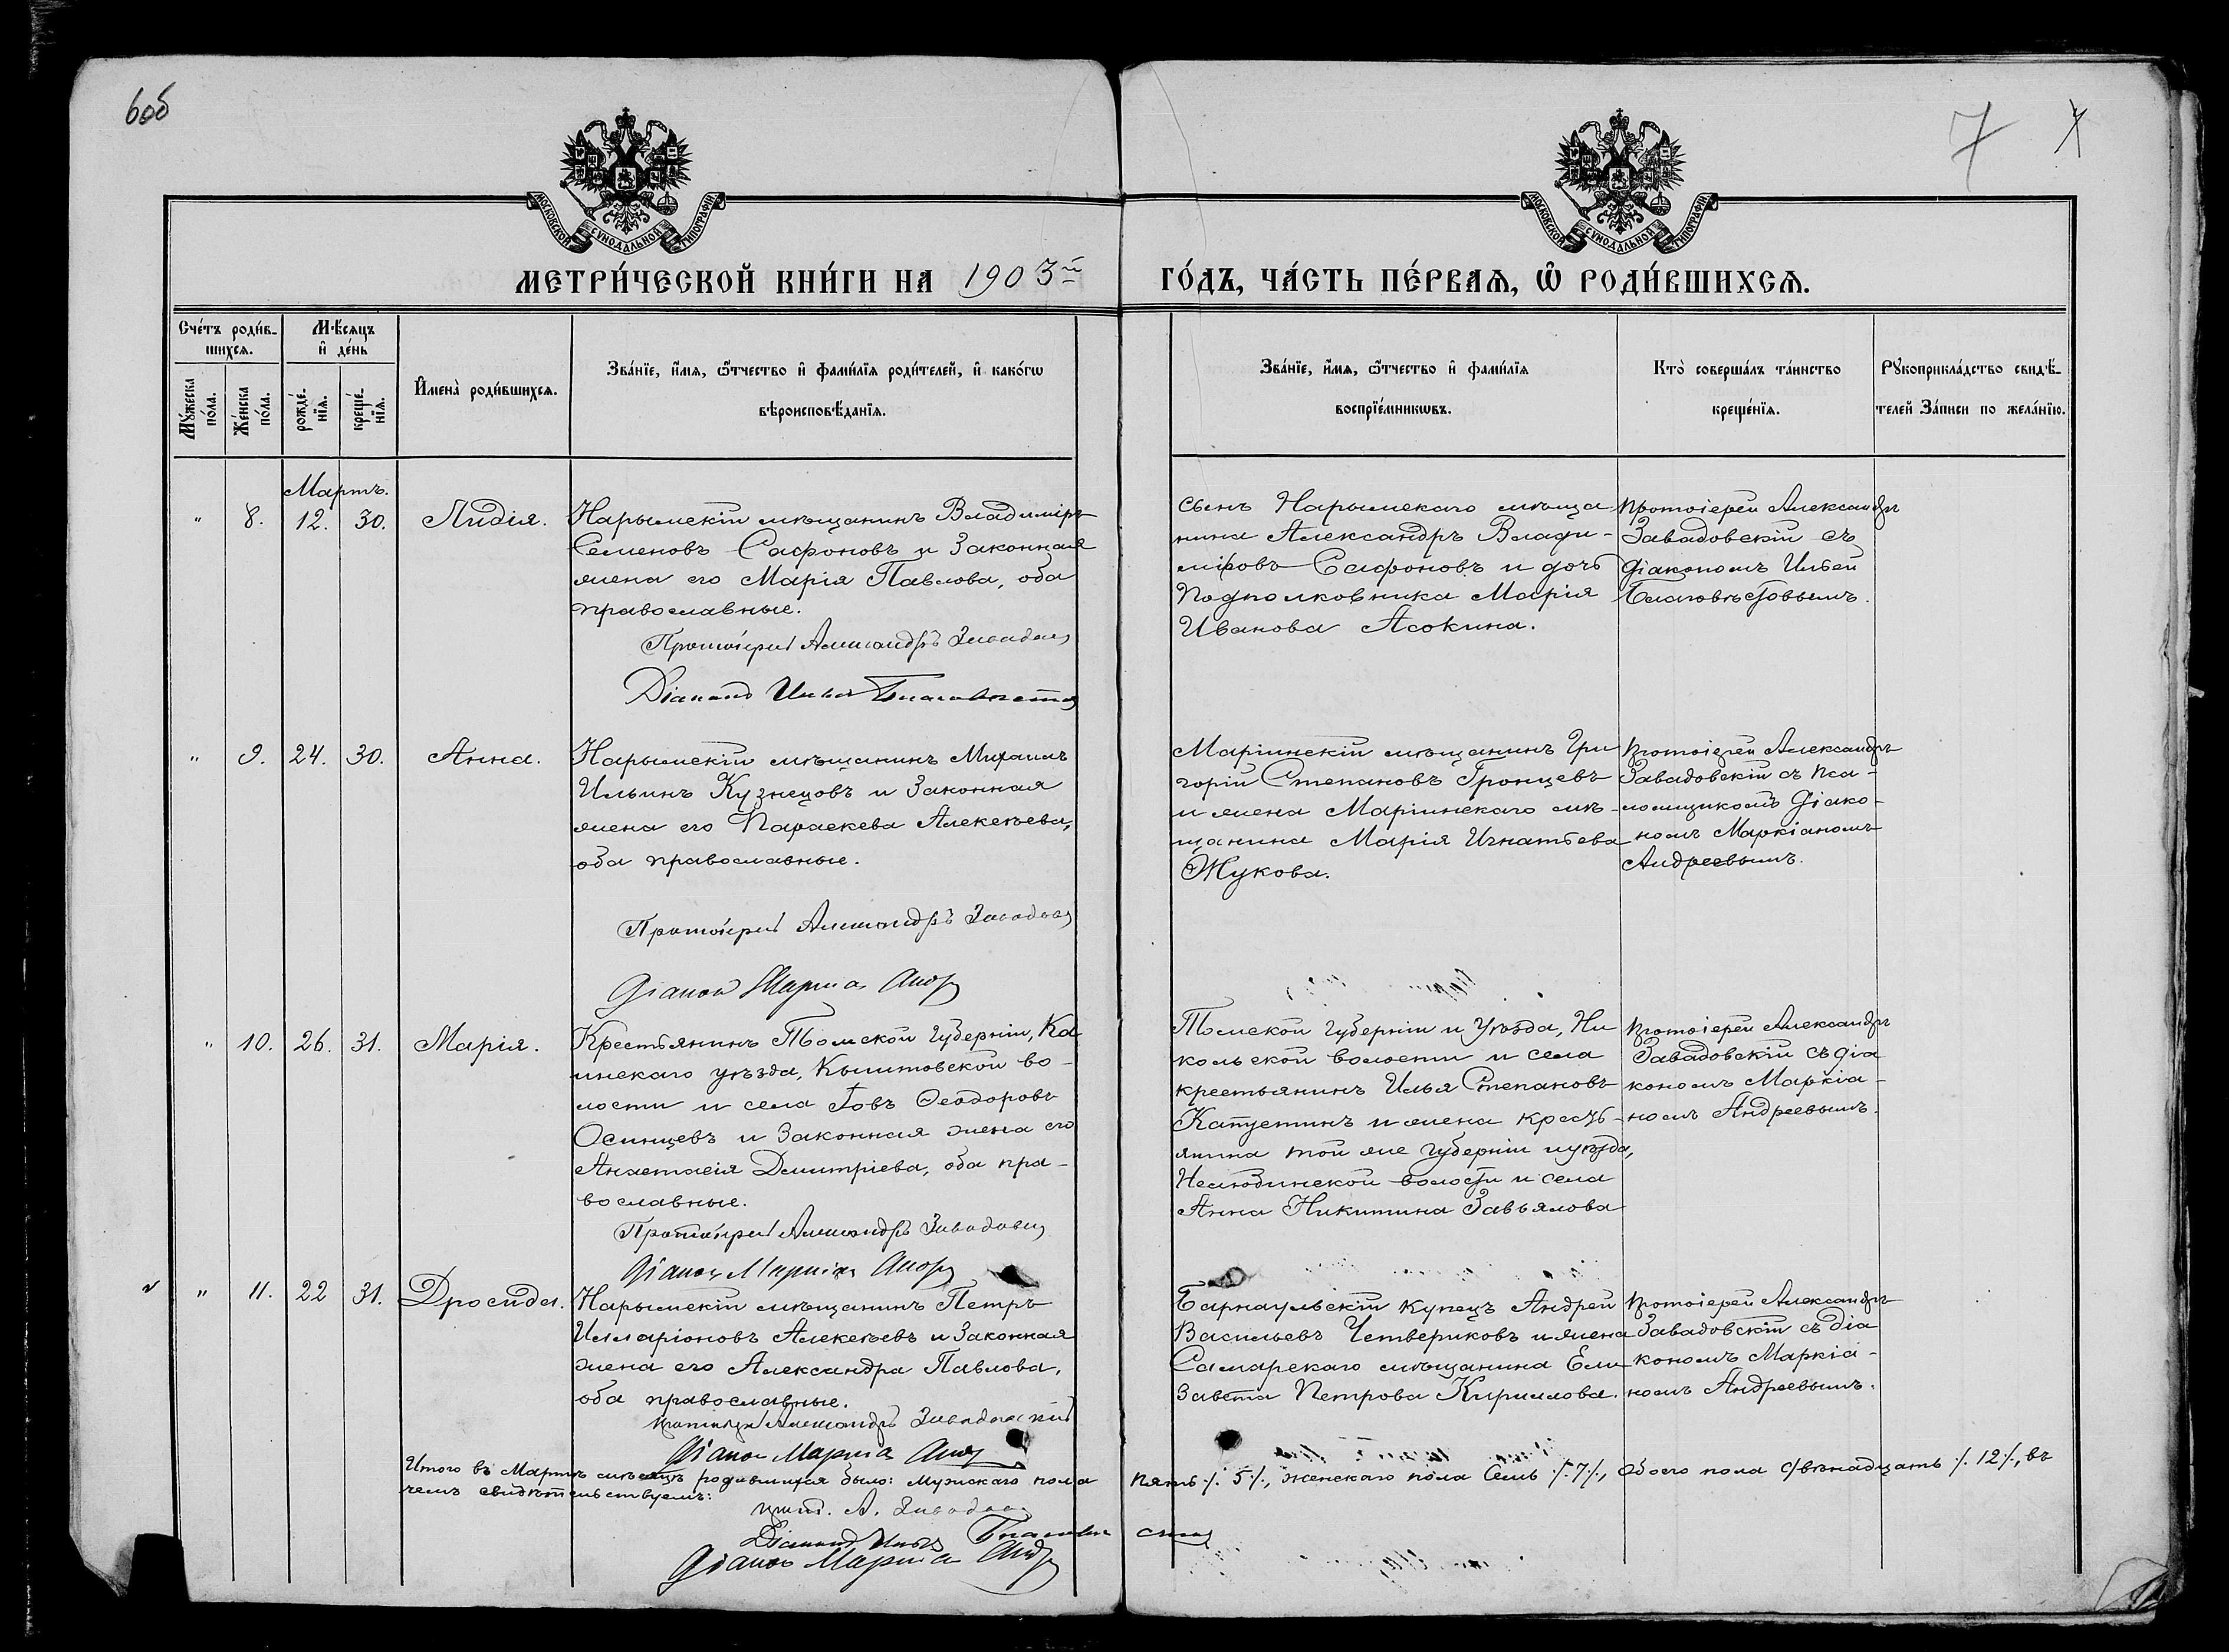 6об
7
МОСКОВСКОЙ СУНОДАЛЬНОЙ ТИПОГРАФІИ
МОСКОВСКОЙ СУНОДАЛЬНОЙ ТИПОГРАФІИ
МЕТРИ́ЧЕСКОЙ КНИ́ГИ НА 1903й
ГО́ДЪ, ЧА́СТЬ ПЕ́РВАѦ, Ѡ РОДИ́ВШИХСѦ.
Сче́тъ роди́в-
шихсѧ.
Мѣ́сяцъ
и҆ де́нь
Мꙋ́жеска
по́ла.
Же́нска
по́ла.
рожде́-
нїѧ.
креще́-
нїѧ.
И҆мена̀ роди́вшихсѧ.
Зва́нїе, и҆́мѧ, ѻ҆́тчество и҆ фами́лїѧ роди́телей, и҆ како́гѡ
вѣроисповѣ́данїѧ.
Зва́нїе, и҆́мѧ, ѻ҆́тчество и҆ фами́лїѧ
воспрїе́мникѡвъ.
Кто̀ соверша́лъ та́инство
креще́нїѧ.
Рꙋкоприкла́дство свидѣ́-
телей За́писи по жела́нїю.
Мартъ.
" 8. 12. 30. Лидія.
Нарымскій мѣщанинъ Владиміръ
Семеновъ Сафоновъ и законная
жена его Марія Павлова, оба
православные.
Протоіерей Александръ Завадовс
Діаконъ Илья Благовѣстов
Сынъ Нарымскаго мѣща
нина Александръ Влади-
міровъ Сафоновъ и дочь
Подполковника Марія
Иванова Асокина.
Протоіерей Александръ
Завадовскій съ
діакономъ Ильей
Благовѣстовымъ.
" 9. 24. 30. Анна.
Нарымскій мѣщанинъ Михаилъ
Ильинъ Кузнецовъ и законная
жена его Параскева Алексѣева,
оба православные.
Протоіерей Александръ Завадовс
Діаконъ Маркіа Андр
Маріинскій мѣщанинъ Гри
горій Степановъ Гронцевъ
и жена Маріинскаго мѣ-
щанина Марія Игнатьева
Жукова.
Протоіерей Александръ
Завадовскій съ пса-
ломщикомъ діако-
номъ Маркіаномъ
Андреевымъ.
" 10. 26. 31. Марія.
Крестьянинъ Томской губерніи, Ка
инскаго уѣзда, Кыштовской во-
лости и села Іовъ Ѳеодоровъ
Осинцевъ и законная жена его
Анастасія Димитріева, оба пра-
вославные.
Протоіерей Александръ Завадовс
Діаконъ Маркіа Андр
Томской губерніи и уѣзда, Ни
кольской волости и села
крестьянинъ Илья Степановъ
Капустинъ и жена кресть-
янина той же губерніи и уѣзда,
Нелюбинской волости и села
Анна Никитина Завьялова
Протоіерей Александръ
Завадовскій съ діа
кономъ Маркіа-
номъ Андреевымъ.
" 11. 22 31. Дросида.
Нарымскій мѣщанинъ Петръ
Илларіоновъ Алексѣевъ и законная
жена его Александра Павлова,
оба православные.
Протоіерей Александръ Завадовскій
Діаконъ Маркіа Андр
Барнаульскій купецъ Андрей
Васильевъ Четвериковъ и жена
Самарскаго мѣщанина Ели
завета Петрова Кириллова.
Протоіерей Александръ
Завадовскій съ діа
кономъ Маркіа-
номъ Андреевымъ.
Итого въ Мартѣ мѣсяцѣ родившихся было: мужскаго пола пять ⁒ 5 ⁒, женскаго пола семь ⁒ 7 ⁒, обоего пола двѣнадцать ⁒ 12 ⁒, въ
чемъ свидѣтельствуемъ:
Прот. А. Завадовс
Діаконъ Илья Благовѣстов
Діаконъ Маркіа Андр